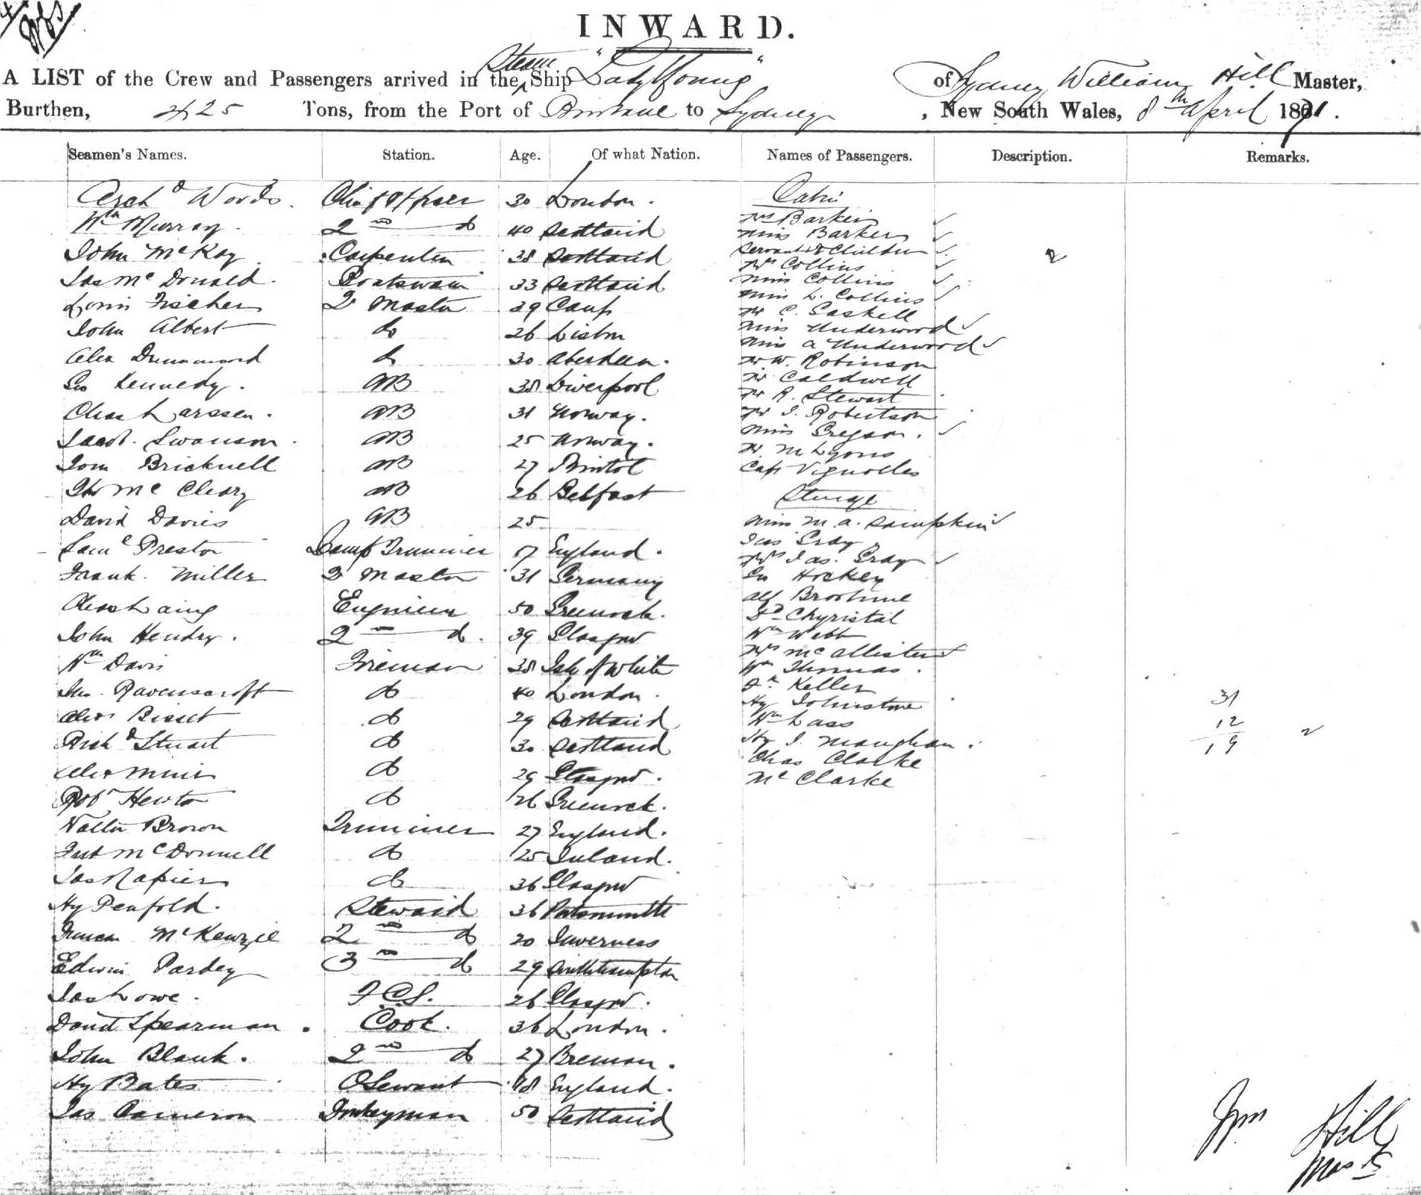 INWARD.
A LIST of the Crew and Passengers arrived in the Steam Ship "Lady Young" of Sydney William Hill Master,
Burthen, 425 Tons, from the Port of Brisbane to Sydney, New South Wales, 8th April 1871.
Seamen's Names. Station. Age. Of what Nation. Names of Passengers. Description. Remarks.
Archd Woods. Chief Officer 30 London.
Wm Murray. 2nd do 40 Scotland
John McKay Carpenter 38 Scotland
Jas McDonald. Boatswain 33 Scotland
Louis Fischer 2 Master 29
John Albert do 26 Lisbon
Alex Drummond do 30 Aberdeen.
Geo Kennedy. AB 38 Liverpool
Chas Larssen. AB 31 Norway.
Jacob Swanson. AB 25 Norway.
Tom Bricknell AB 27 Bristol
Tho McCleary AB 26 Belfast
David Davies AB 25
Saml Preston Lamp Trimmer 17 England.
Frank Miller 2 Master 31 Germany
Chas Laing Engineer 50 Greenock.
John Hendry. 2nd do. 39 Glasgow
Wm Davis Fireman 38 Isle of White
Jno. Ravenscroft do 40 London.
Alex Bisset do 29 Scotland
Richd Stuart do 30 Scotland
Alex do 29 Glasgow.
Robt Hewton do 26 Greenock.
Walter Brown Trimmer 27 England.
McDonnell do 25 Ireland.
Jas Napier do 36 Glasgow
Hy Penfold. Steward 36 Portsmouth
Duncan McKenzie 2nd do 20 Inverness
Edwin Pardey 3rd do 29 Southampton
Jas Lowe. F.C.S. 26 Glasgow.
David Spearman. Cook. 36 London.
John Blank. 2nd do 27 Bremen.
Hy Bates O Servant 18 England.
Jas Cameron Donkeyman 50 Scotland
Cabin
Mrs Barker
Miss Barker
Servant & Children
Mr Collins
Miss Collins
Miss L. Collins
Mr C. Gaskell
Miss Underwood
Miss A Underwood
Mr W. Robinson
Mr Caldwell
Mr R. Stewart
Mr J. Robertson
Miss Gregson.
Mr M Lyons
Cap Vignolles
Steerage
Miss M. A. Lampkin
Jas Gray
Mrs Jas. Gray
Geo Hockey
Alf Broome
Chrystal
Wm Webb
Mrs McAllister
Wm Thomas.
Keller
Hy Johnstone
Wm Lass
Hy J. Maughan.
Chas Clarke
Mc Clarke
2
31
12
19
2
Wm Hill
Master